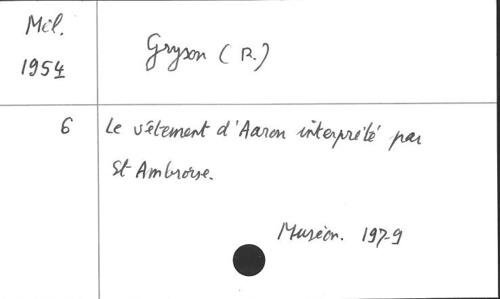 Mél.
1954
Gryson (R.)
6
Le vêtement d'Aaron interprété par
St Ambroise.
Muséon. 1979